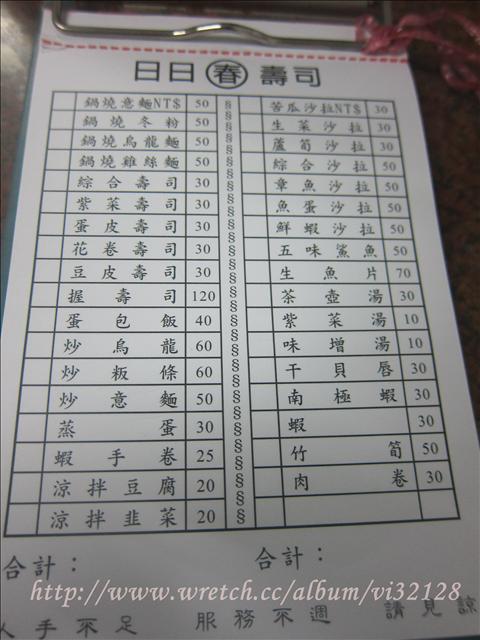 日日春壽司
鍋燒意麵NT$ 50
鍋燒冬粉 50
鍋燒烏龍麵 50
鍋燒雞絲麵 50
綜合壽司 30
紫菜壽司 30
蛋皮壽司 30
花卷壽司 30
豆皮壽司 30
握壽司 120
蛋包飯 40
炒烏龍 60
炒粄條 60
炒意麵 50
蒸蛋 30
蝦手卷 25
涼拌豆腐 20
涼拌韭菜 20
合計：
苦瓜沙拉NT$ 30
生菜沙拉 30
蘆筍沙拉 30
綜合沙拉 50
章魚沙拉 50
魚蛋沙拉 50
鮮蝦沙拉 50
五味鯊魚 50
生魚片 70
茶壺湯 30
紫菜湯 10
味增湯 10
干貝唇 30
南極蝦 30
蝦 30
竹筍 50
肉卷 30
合計：
人手不足 服務不週 請見諒
http://www.wretch.cc/album/vi32128